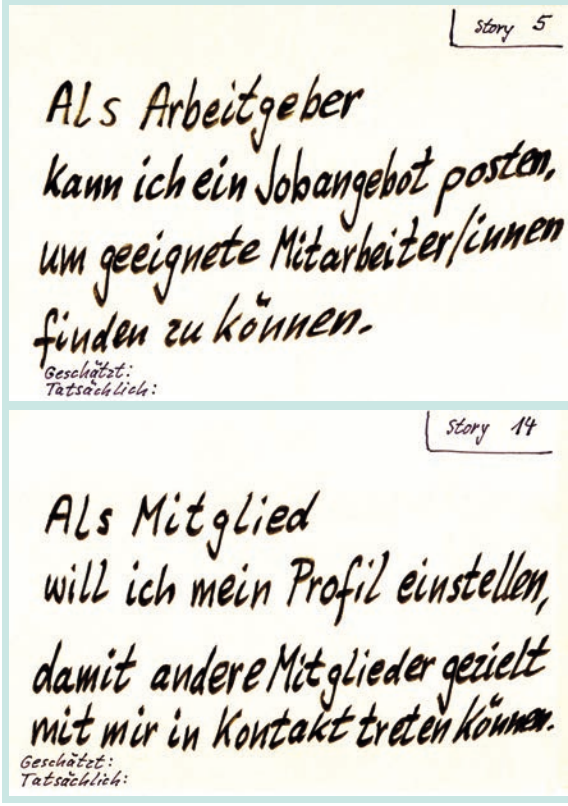 Story 5
Als Arbeitgeber
kann ich ein Jobangebot posten,
um geeignete Mitarbeiter/innen
finden zu können.
Geschätzt:
Tatsächlich:
Story 14
Als Mitglied
will ich mein Profil einstellen,
damit andere Mitglieder gezielt
mit mir in Kontakt treten können.
Geschätzt:
Tatsächlich: